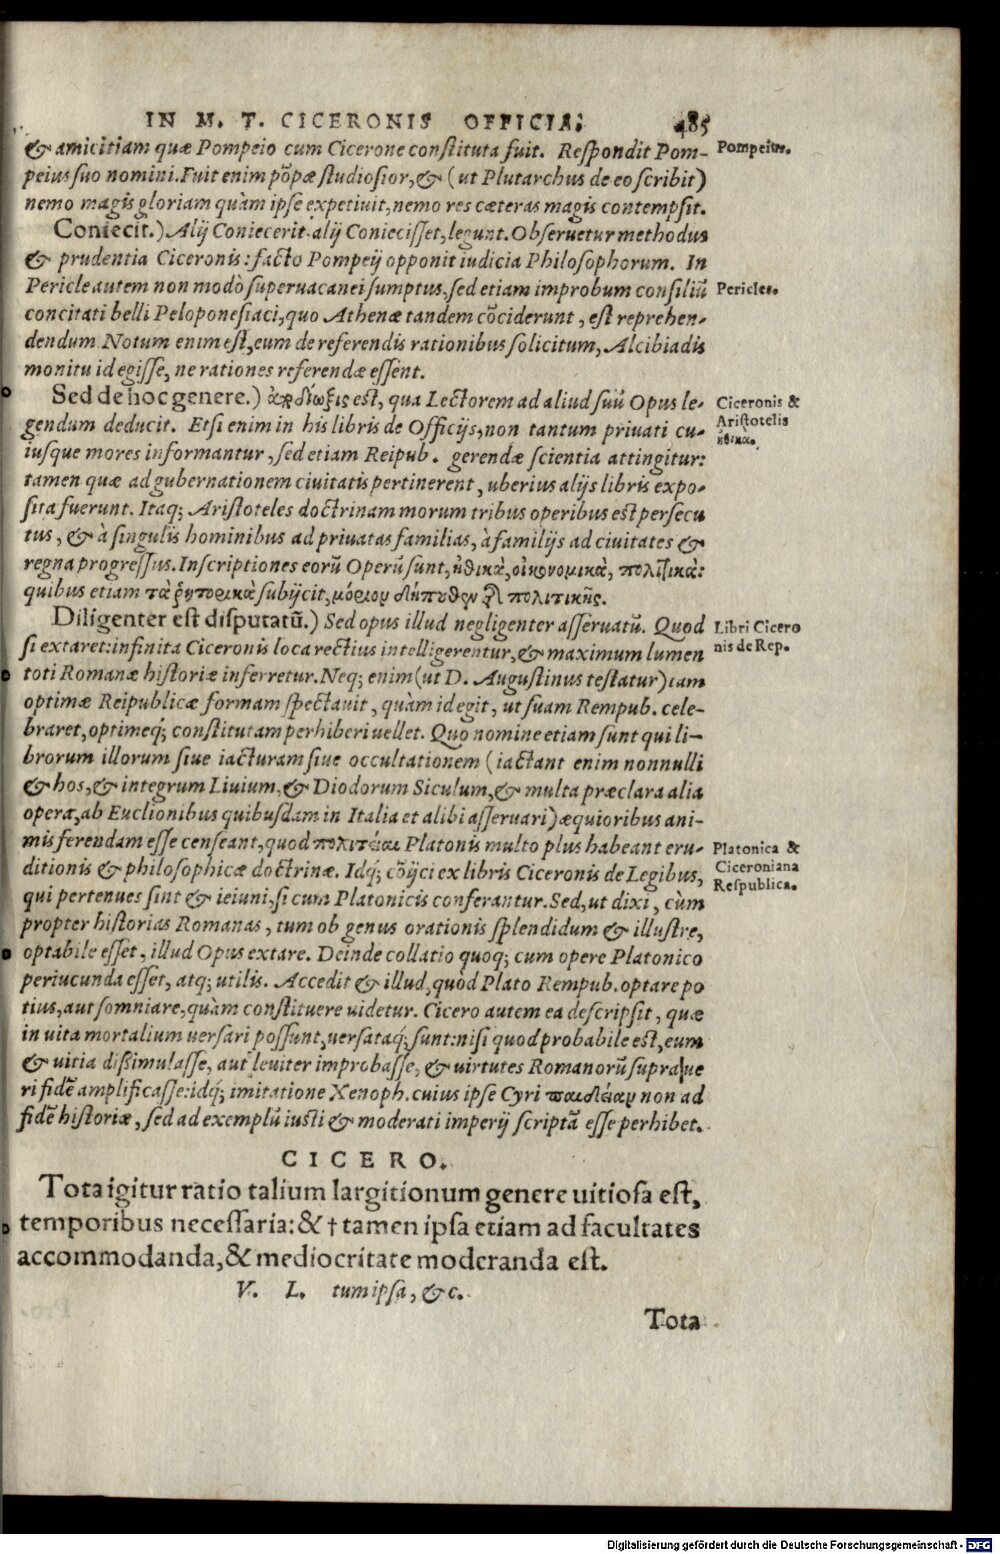 IN M. T. CICERONIS OFFICIA; 485
& amicitiam quæ Pompeio cum Cicerone constituta fuit. Respondit Pom-
Pompeius.
peius suo nomini. Fuit enim põpæ studiosior, & (ut Plutarchus de eo scribit)
nemo magis gloriam quàm ipse expetiuit, nemo res cæteras magis contempsit.
Coniecit.) Alij Coniecerit. alij Coniecisset, legunt. Obseruetur methodus
& prudentia Ciceronis: facto Pompeij opponit iudicia Philosophorum. In
Pericle autem non modò superuacanei sumptus, sed etiam improbum consiliũ
Pericles.
concitati belli Peloponesiaci, quo Athenæ tandem cõciderunt, est reprehen-
dendum. Notum enim est, eum de referendis rationibus solicitum, Alcibiadis
monitu id egisse, ne rationes referendæ essent.
Sed de hoc genere.) est, qua Lectorem ad aliud suũ Opus le-
Ciceronis &
Aristotelis
ἠθικα.
gendum deducit. Etsi enim in his libris de Officijs, non tantum priuati cu-
iusque mores informantur, sed etiam Reipub. gerendæ scientia attingitur:
tamen quæ ad gubernationem ciuitatis pertinerent, uberius alijs libris expo-
sita fuerunt. Itaq; Aristoteles doctrinam morum tribus operibus est persecu
tus, & à singulis hominibus ad priuatas familias, à familijs ad ciuitates &
regna progressus. Inscriptiones eorũ Operũ sunt, ἠθικὰ, οἰκονομικὰ, πολιτικὰ:
quibus etiam τὰ ῥητορικὰ subijcit, μόριον δήπουθεν τῆς πολιτικῆς.
Diligenter est disputatũ.) Sed opus illud negligenter asseruatũ. Quod
Libri Cicero
nis de Rep.
si extaret: infinita Ciceronis loca rectius intelligerentur, & maximum lumen
toti Romanæ historiæ inferretur. Neq; enim (ut D. Augustinus testatur) tam
optimæ Reipublicæ formam spectauit, quàm id egit, ut suam Rempub. cele-
braret, optimeq́; constitutam perhiberi uellet. Quo nomine etiam sunt qui li-
brorum illorum siue iacturam siue occultationem (iactant enim nonnulli
& hos, & integrum Liuium, & Diodorum Siculum, & multa præclara alia
opera, ab Euclionibus quibusdam in Italia et alibi asseruari) æquioribus ani-
mis ferendam esse censeant, quod πολιτεῖαι Platonis multo plus habeant eru-
Platonica &
Ciceroniana
Respublica.
ditionis & philosophicæ doctrinæ. Idq́; cõijci ex libris Ciceronis de Legibus,
qui pertenues sint & ieiuni, si cum Platonicis conferantur. Sed, ut dixi, cùm
propter historias Romanas, tum ob genus orationis splendidum & illustre,
optabile esset, illud Opus extare. Deinde collatio quoq; cum opere Platonico
periucunda esset, atq; utilis. Accedit & illud, quòd Plato Rempub. optare po
tius, aut somniare, quàm constituere uidetur. Cicero autem ea descripsit, quæ
in uita mortalium uersari possunt, uersataq́; sunt: nisi quod probabile est, eum
& uitia dissimulasse, aut leuiter improbasse, & uirtutes Romanorũ supra ue
ri fidẽ amplificasse: idq́; imitatione Xenoph. cuius ipse Cyri παιδείαν non ad
fidẽ historiæ, sed ad exemplũ iusti & moderati imperij scriptã esse perhibet.
CICERO.
Tota igitur ratio talium largitionum genere uitiosa est,
temporibus necessaria: & † tamen ipsa etiam ad facultates
accommodanda, & mediocritate moderanda est.
V. L. tum ipsa, &c.
Tota
Digitalisierung gefördert durch die Deutsche Forschungsgemeinschaft - DFG